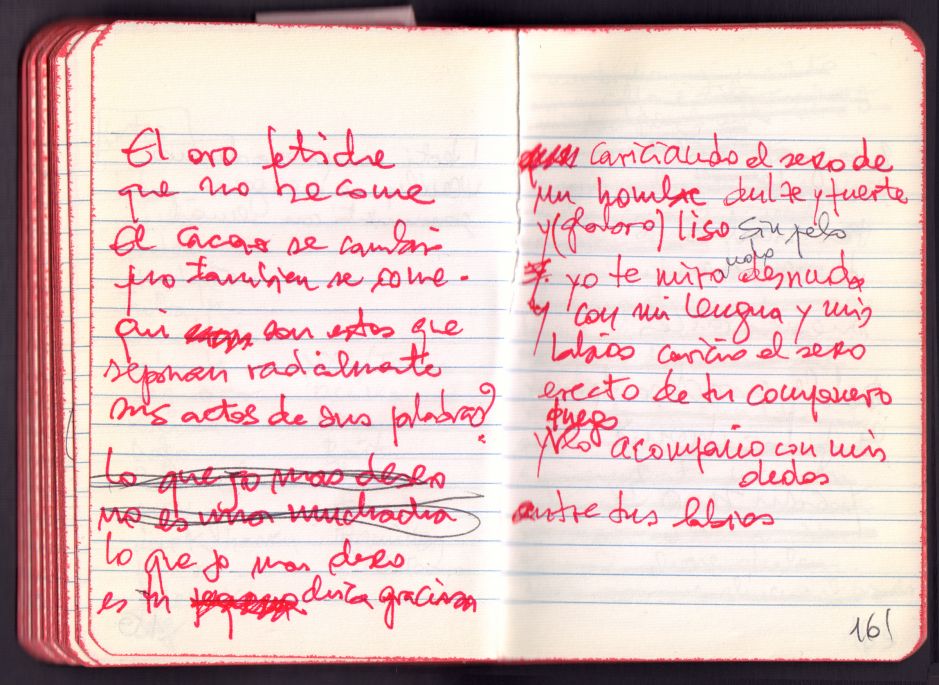 El oro fetiche
que no se come
El cacao se cambia
pero tambien se come.
Qui son estos que
separan radicalmente
sus actos de sus palabras?
lo que yo mas deseo
no es una muchacha
lo que yo mas deseo
es tu graciosa
cariciando el sexo de
un hombre dulce y fuerte
y (glavoro) liso sin pelo
yo te miro desnuda
y con mi lengua y mis
labios caricio el sexo
erecto de tu companero
luego
y lo acompaño con mis
dedos
entre tus labios
161